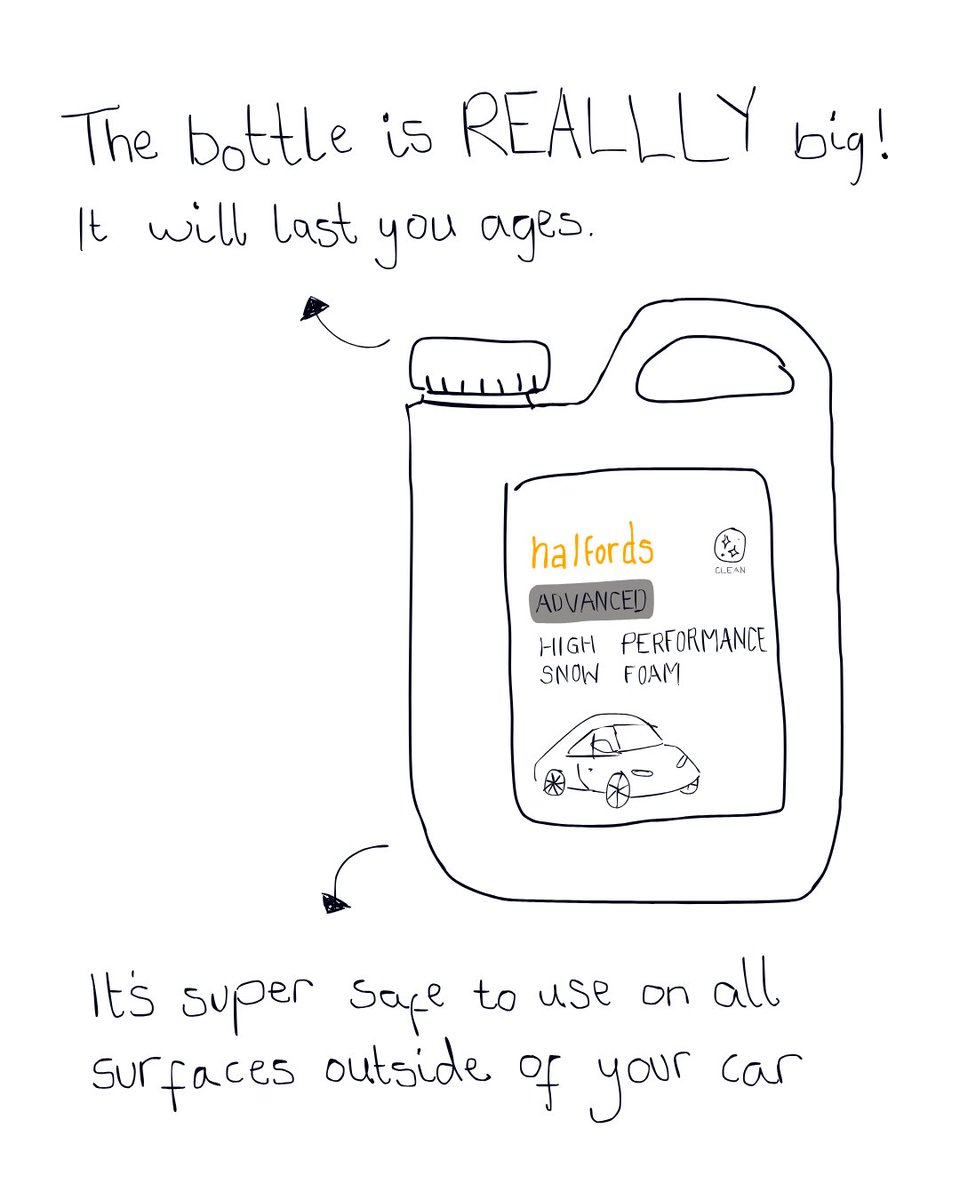 The bottle is REALLLY big!
It will last you ages.
halfords
CLEAN
ADVANCED
HIGH PERFORMANCE
SNOW FOAM
It's super safe to use on all
surfaces outside of your car